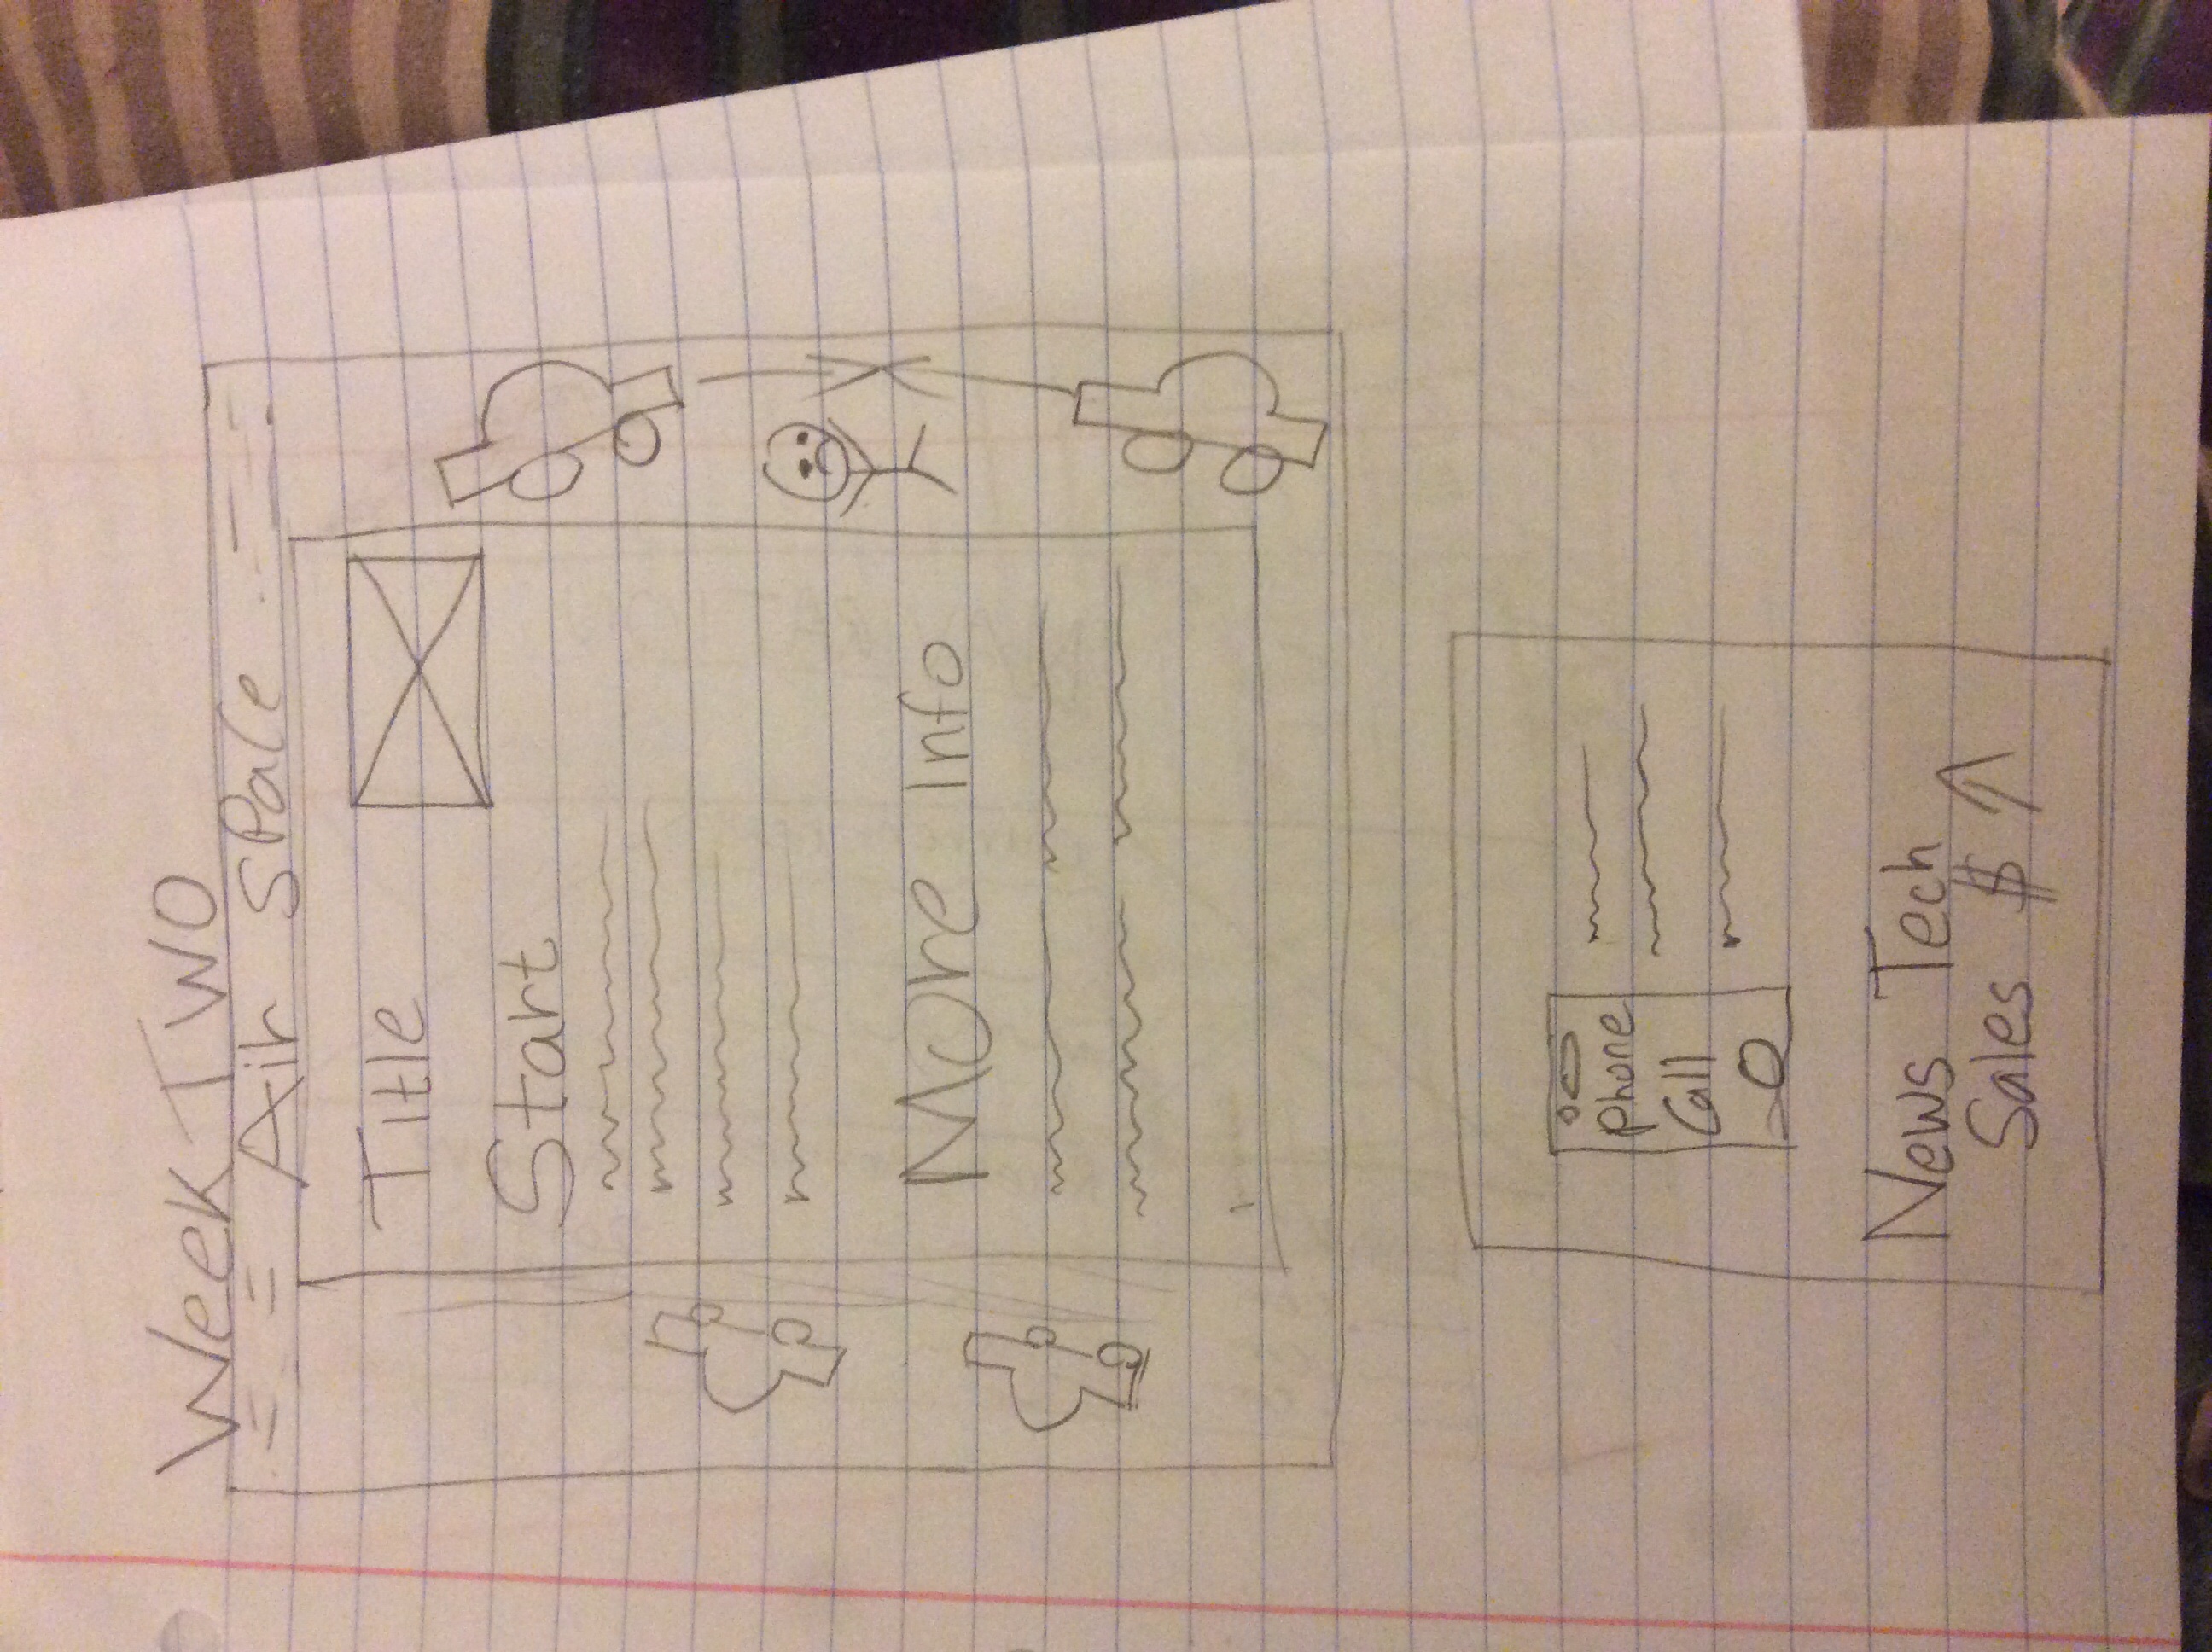 Week Two
Air Space
Title
Start
More Info
Phone
Call
News Tech
Sales $ ↑